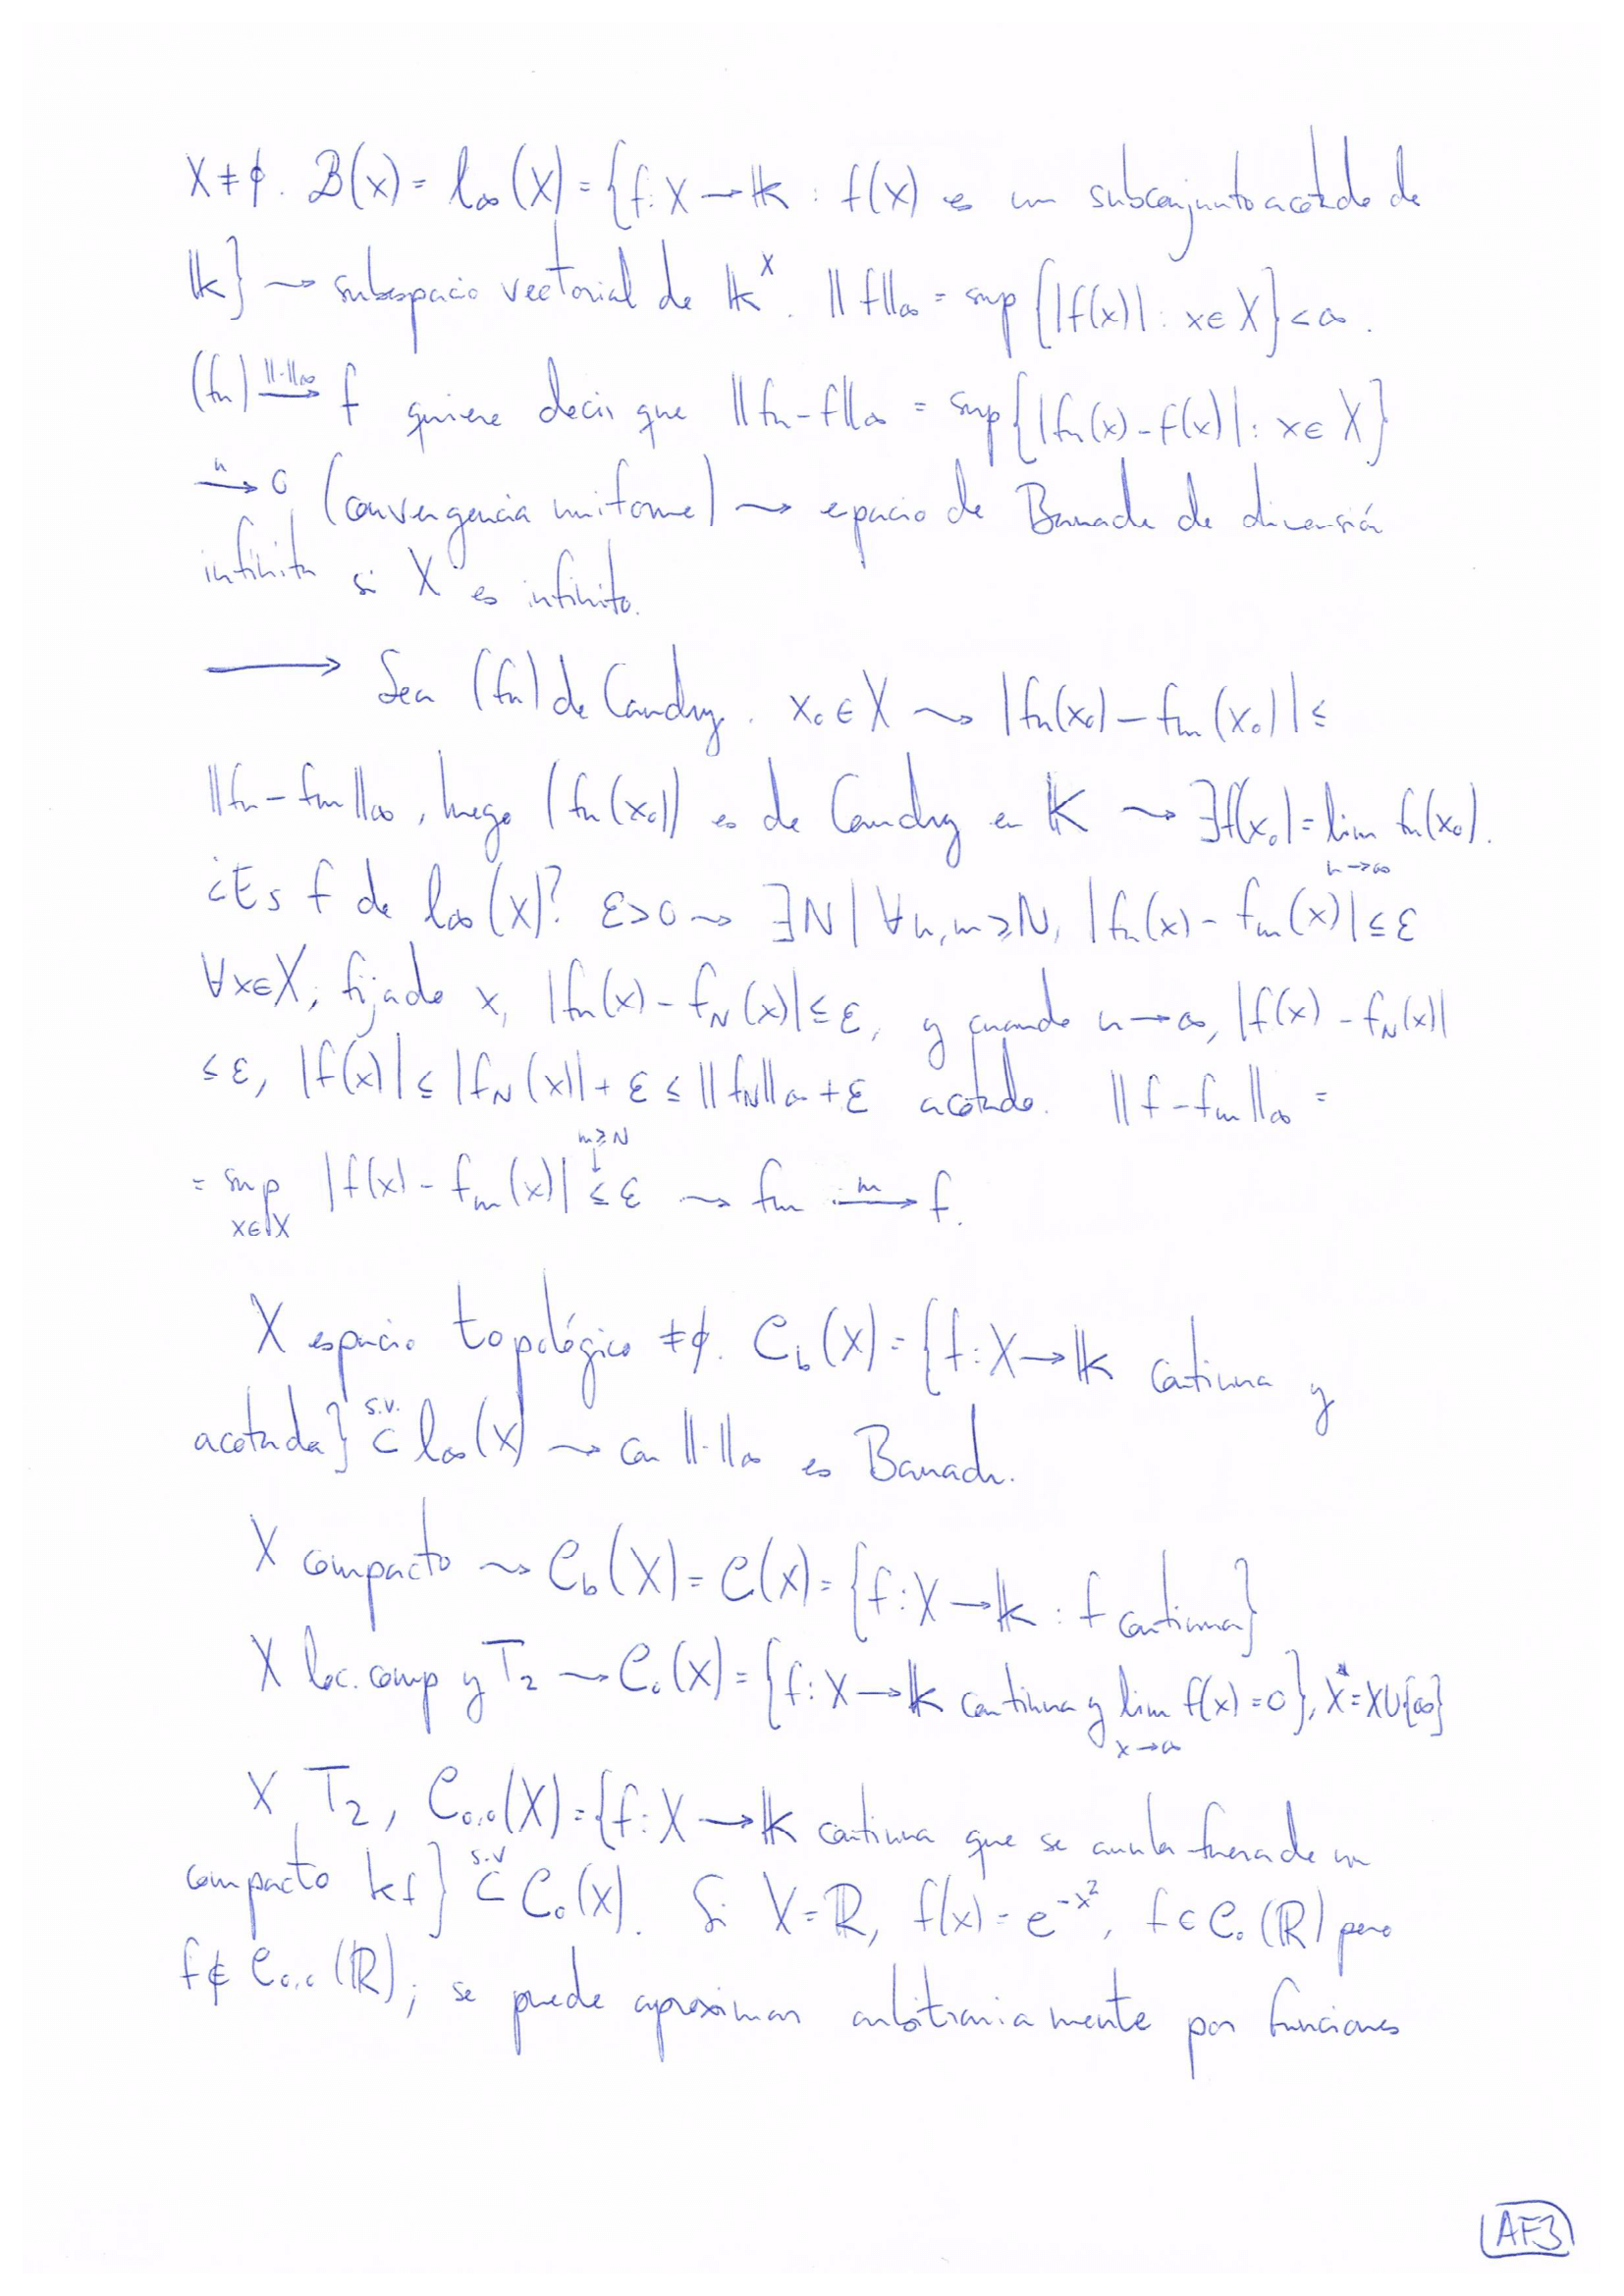 X ≠ ∅. B(X) = l∞(X) = {f: X → 𝕂 : f(X) es un subconjunto acotado de
𝕂} ⇝ subespacio vectorial de 𝕂^X. ||f||∞ = sup {|f(x)| : x ∈ X} < ∞.
(fn) —||·||∞→ f quiere decir que ||fn - f||∞ = sup{|fn(x) - f(x)| : x ∈ X}
—n→ 0 (convergencia uniforme) ⇝ espacio de Banach de dimensión
infinita si X es infinito.
⟶ Sea (fn) de Cauchy. x₀ ∈ X ⇝ |fn(x₀) - fm(x₀)| ≤
||fn - fm||∞, luego (fn(x₀)) es de Cauchy en 𝕂 ⇝ ∃f(x₀) = lim_{n→∞} fn(x₀).
¿Es f de l∞(X)? ε > 0 ⇝ ∃N | ∀n,m ≥ N, |fn(x) - fm(x)| ≤ ε
∀x ∈ X; fijado x, |fn(x) - f_N(x)| ≤ ε, y cuando n → ∞, |f(x) - f_N(x)|
≤ ε, |f(x)| ≤ |f_N(x)| + ε ≤ ||f_N||∞ + ε acotado. ||f - fm||∞ =
= sup_{x∈X} |f(x) - fm(x)| ≤ (m ≥ N ↓) ε ⇝ fm —m→ f.
X espacio topológico ≠ ∅. C_b(X) = {f: X → 𝕂 continua y
acotada} ⊂ (s.v.) l∞(X) ⇝ con ||·||∞ es Banach.
X compacto ⇝ C_b(X) = C(X) = {f: X → 𝕂 : f continua}
X loc. comp y T₂ ⇝ C₀(X) = {f: X → 𝕂 continua y lim_{x→∞} f(x) = 0}, X* = X∪{∞}
X T₂, C₀,₀(X) = {f: X → 𝕂 continua que se anula fuera de un
compacto kf} ⊂ (s.v) C₀(X). Si X = ℝ, f(x) = e^{-x²}, f ∈ C₀(ℝ) pero
f ∉ C₀,₀(ℝ); se puede aproximar arbitrariamente por funciones
AF3